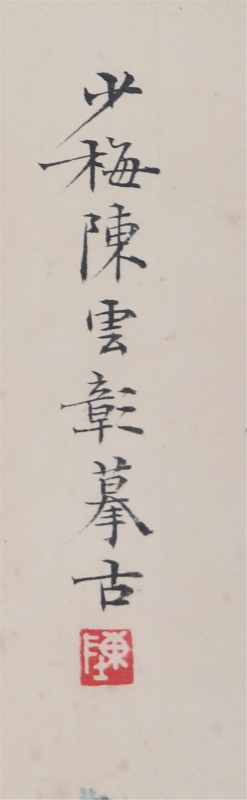 少梅陳雲彰摹古
陳